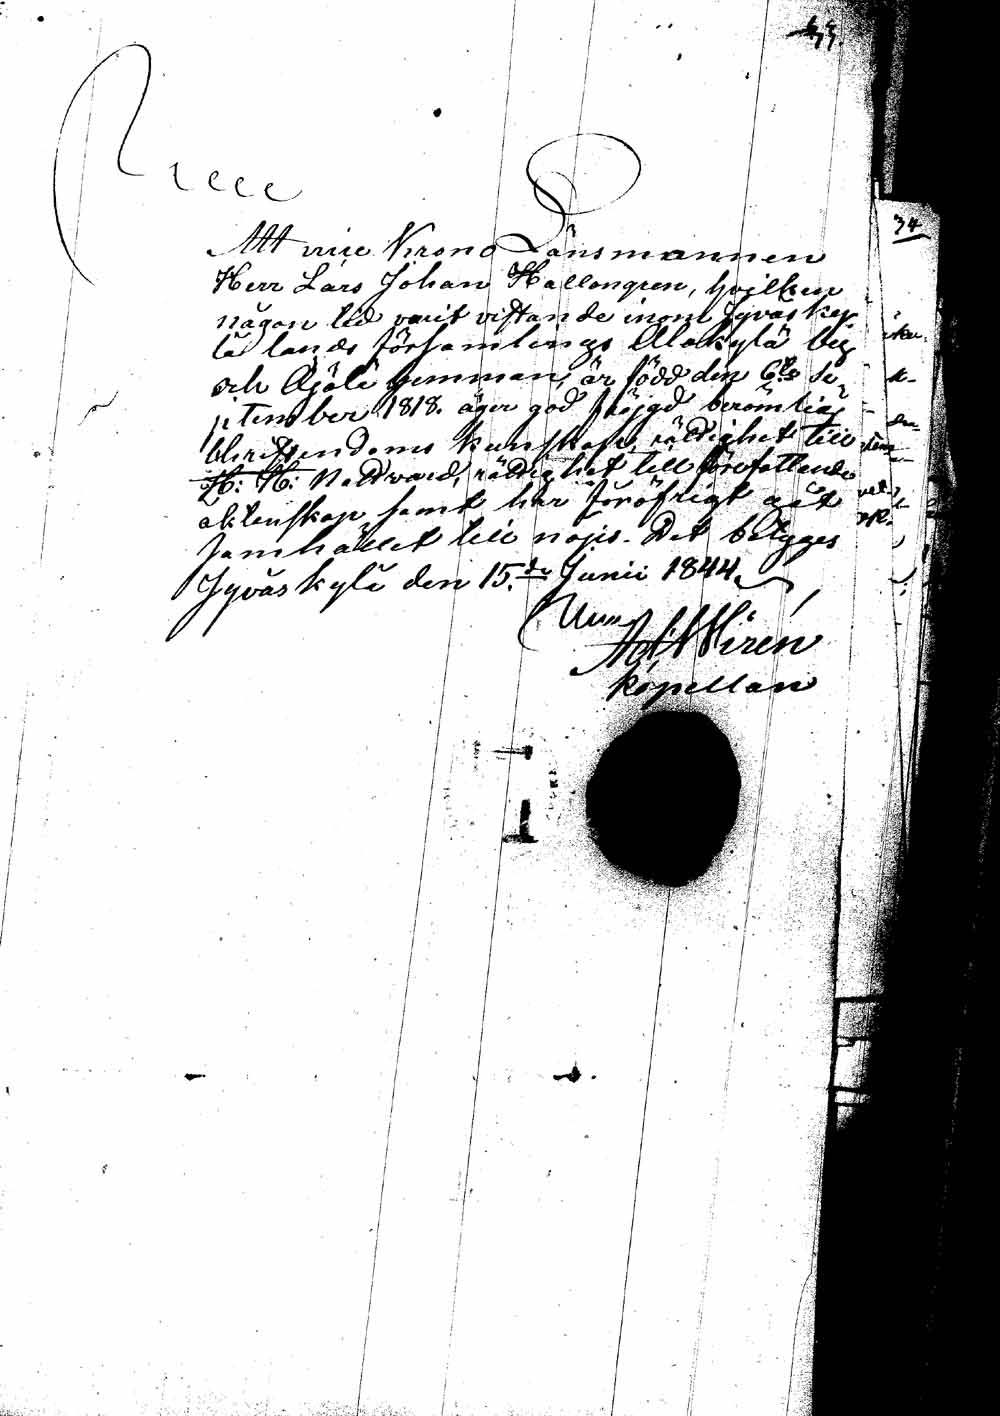 Att vice Krono Länsmannen
Herr Lars Johan Hallongren, hvilken
någon tid varit vistande inom Jyväsky-
lä lands församlings Alakylä by
och Äjälä hemman, är född den 6te Se-
ptember 1818. äger god fräjgd berömlig
Christendoms kunskap, rättighet till
H: H: Nattvard, rättighet till författande
äktenskap samt har föröfrigt gåt
samhället till nöjes. Det betyges
Jyväskylä den 15.de Junii 1844.
Ad. Wiren
kapellan
34